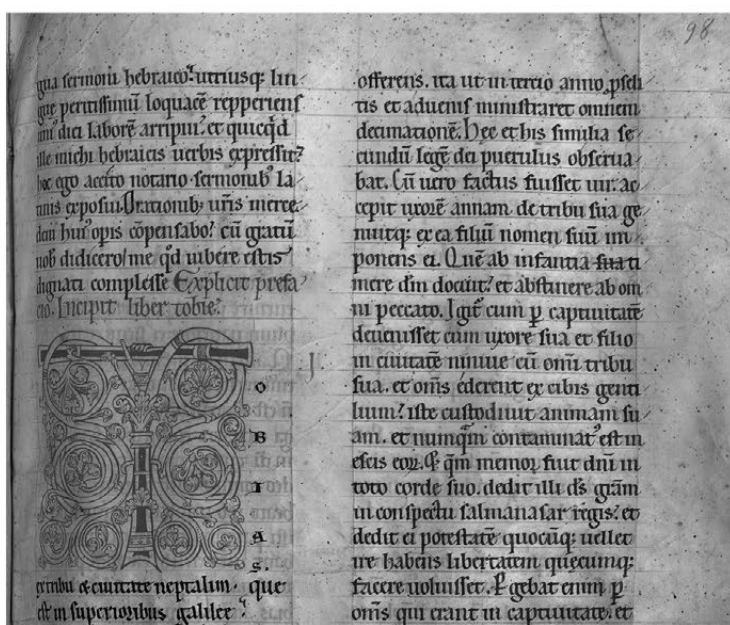 98
gua sermoni hebraico. utriusq; lin
gue peritissimū loquacē repperiens
uni' diei laborē arripui. et quicq̄d
ille michi hebraicis uerbis expressit.
hoc ego accito notario. sermonib; la
tinis exposui. Orationib; urīs merce
dem hui' opis cōpensabo. cū gratum
uob didicero. me q̄d iubere estis
dignati complesse Explicit prefa
cio. Incipit liber tobie.
T
O
B
I
A
S.
ex tribu & ciuitate neptalim. que
est in superioribus galilee.
offerens. ita ut in tercio anno pseli
tis et aduenis ministraret omnem
decimationē. Hec et his similia se
cundū legē dei puerulus obserua
bat. Cū uero factus fuisset uir. ac
cepit uxorē annam de tribu sua ge
nuitq; ex ea filiū nomen suū im
ponens ei. Quē ab infantia sua ti
mere dm̄ docuit. et abstinere ab om
ni peccato. Igit' cum p captiuitatē
deuenisset cum uxore sua et filio
in ciuitatē niniue cū omi tribu
sua. et om̄s ederent ex cibis genti
lium. iste custodiuit animam su
am. et numq̄m contaminat' est in
escis eoꝝ. Et qm̄ memor fuit dnī in
toto corde suo. dedit illi d̄s grām
in conspectu salmanasar regis. et
dedit ei potestatē quocūq; uellet
ire habens libertatem quecumq;
facere uoluisset. Pgebat enim p
om̄s qui erant in captiuitate. et